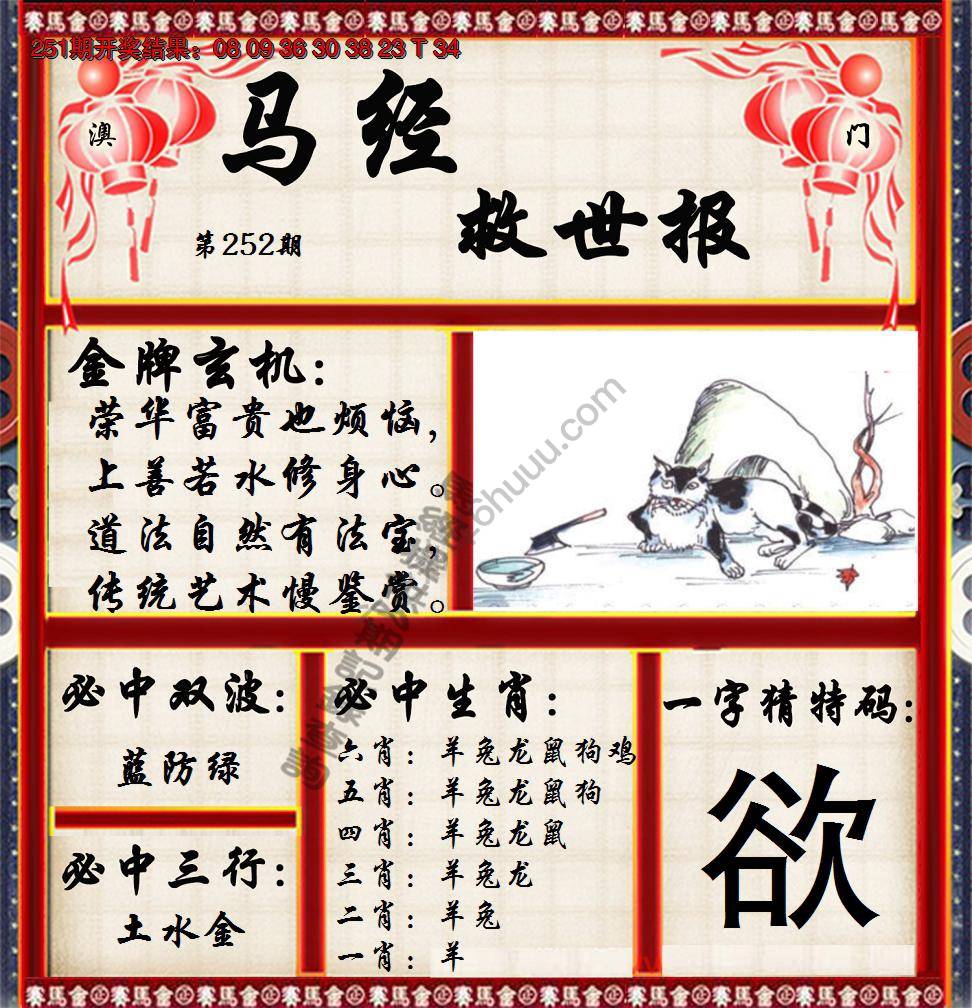 251期开奖结果：08 09 36 30 38 23 T 34
澳
门
马经
救世报
第252期
金牌玄机：
荣华富贵也烦恼，
上善若水修身心。
道法自然有法宝，
传统艺术慢鉴赏。
必中双波：
蓝防绿
必中三行：
土水金
必中生肖：
六肖：羊兔龙鼠狗鸡
五肖：羊兔龙鼠狗
四肖：羊兔龙鼠
三肖：羊兔龙
二肖：羊兔
一肖：羊
一字猜特码：
欲